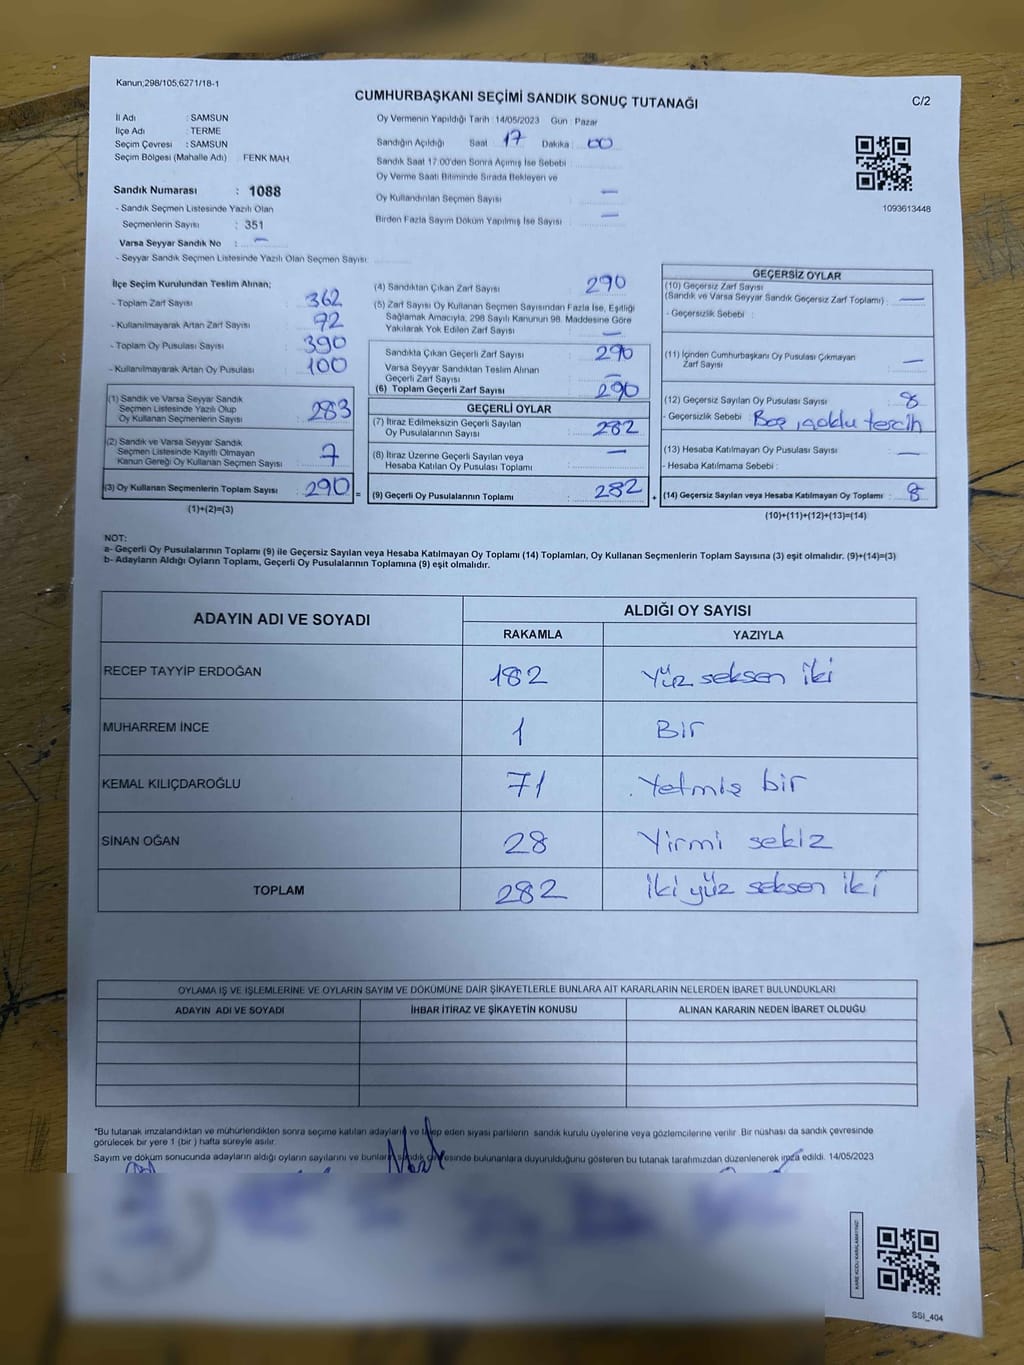 Kanun;298/105,6271/18-1
CUMHURBAŞKANI SEÇİMİ SANDIK SONUÇ TUTANAĞI
C/2
İl Adı : SAMSUN
İlçe Adı : TERME
Seçim Çevresi : SAMSUN
Seçim Bölgesi (Mahalle Adı) FENK MAH
Sandık Numarası : 1088
- Sandık Seçmen Listesinde Yazılı Olan
Seçmenlerin Sayısı : 351
Varsa Seyyar Sandık No : –
- Seyyar Sandık Seçmen Listesinde Yazılı Olan Seçmen Sayısı:
Oy Vermenin Yapıldığı Tarih :14/05/2023 Gün : Pazar
Sandığın Açıldığı Saat : 17 Dakika : 00
Sandık Saat 17:00'den Sonra Açımış İse Sebebi :
Oy Verme Saati Bitiminde Sırada Bekleyen ve
Oy Kullandırılan Seçmen Sayısı : –
Birden Fazla Sayım Döküm Yapılmış İse Sayısı : –
1093613448
İlçe Seçim Kurulundan Teslim Alınan;
- Toplam Zarf Sayısı : 362
- Kullanılmayarak Artan Zarf Sayısı : 72
- Toplam Oy Pusulası Sayısı : 390
- Kullanılmayarak Artan Oy Pusulası : 100
(1) Sandık ve Varsa Seyyar Sandık
Seçmen Listesinde Yazılı Olup
Oy Kullanan Seçmenlerin Sayısı : 283
(2) Sandık ve Varsa Seyyar Sandık
Seçmen Listesinde Kayıtlı Olmayan
Kanun Gereği Oy Kullanan Seçmen Sayısı : 7
(3) Oy Kullanan Seçmenlerin Toplam Sayısı : 290 =
(1)+(2)=(3)
(4) Sandıktan Çıkan Zarf Sayısı : 290
(5) Zarf Sayısı Oy Kullanan Seçmen Sayısından Fazla İse, Eşitliği
Sağlamak Amacıyla, 298 Sayılı Kanunun 98. Maddesine Göre
Yakılarak Yok Edilen Zarf Sayısı : –
Sandıkta Çıkan Geçerli Zarf Sayısı : 290
Varsa Seyyar Sandıktan Teslim Alınan
Geçerli Zarf Sayısı : –
(6) Toplam Geçerli Zarf Sayısı : 290
GEÇERLİ OYLAR
(7) İtiraz Edilmeksizin Geçerli Sayılan
Oy Pusulalarının Sayısı : 282
(8) İtiraz Üzerine Geçerli Sayılan veya
Hesaba Katılan Oy Pusulası Toplamı : –
(9) Geçerli Oy Pusulalarının Toplamı : 282 +
GEÇERSİZ OYLAR
(10) Geçersiz Zarf Sayısı
(Sandık ve Varsa Seyyar Sandık Geçersiz Zarf Toplamı) : –
- Geçersizlik Sebebi :
(11) İçinden Cumhurbaşkanı Oy Pusulası Çıkmayan
Zarf Sayısı : –
(12) Geçersiz Sayılan Oy Pusulası Sayısı : 8
- Geçersizlik Sebebi : Boş, çoklu tercih
(13) Hesaba Katılmayan Oy Pusulası Sayısı : –
- Hesaba Katılmama Sebebi :
(14) Geçersiz Sayılan veya Hesaba Katılmayan Oy Toplamı : 8
(10)+(11)+(12)+(13)=(14)
NOT:
a- Geçerli Oy Pusulalarının Toplamı (9) ile Geçersiz Sayılan veya Hesaba Katılmayan Oy Toplamı (14) Toplamları, Oy Kullanan Seçmenlerin Toplam Sayısına (3) eşit olmalıdır. (9)+(14)=(3)
b- Adayların Aldığı Oyların Toplamı, Geçerli Oy Pusulalarının Toplamına (9) eşit olmalıdır.
ADAYIN ADI VE SOYADI ALDIĞI OY SAYISI
RAKAMLA YAZIYLA
RECEP TAYYİP ERDOĞAN 182 Yüz seksen iki
MUHARREM İNCE 1 Bir
KEMAL KILIÇDAROĞLU 71 Yetmiş bir
SİNAN OĞAN 28 Yirmi sekiz
TOPLAM 282 İki yüz seksen iki
OYLAMA İŞ VE İŞLEMLERİNE VE OYLARIN SAYIM VE DÖKÜMÜNE DAİR ŞİKAYETLERLE BUNLARA AİT KARARLARIN NELERDEN İBARET BULUNDUKLARI
ADAYIN ADI VE SOYADI İHBAR İTİRAZ VE ŞİKAYETİN KONUSU ALINAN KARARIN NEDEN İBARET OLDUĞU
*Bu tutanak imzalandıktan ve mühürlendikten sonra seçime katılan adayların ve talep eden siyasi partilerin sandık kurulu üyelerine veya gözlemcilerine verilir. Bir nüshası da sandık çevresinde
görülecek bir yere 1 (bir ) hafta süreyle asılır.
Sayım ve döküm sonucunda adayların aldığı oyların sayılarını ve bunların sandık çevresinde bulunanlara duyurulduğunu gösteren bu tutanak tarafımızdan düzenlenerek imza edildi. 14/05/2023
KARE KODU KARALAMAYINIZ!
SSI_404